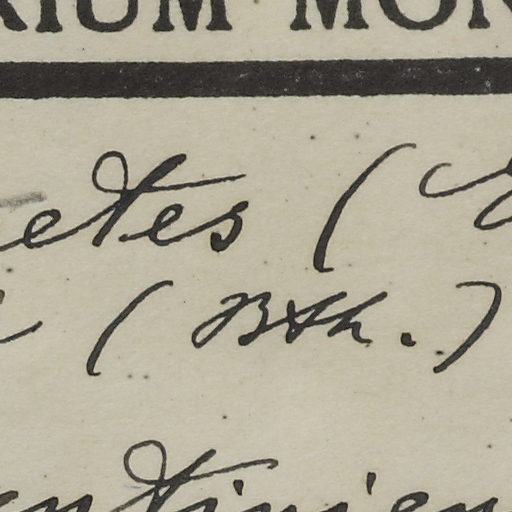 RIUM MON
etes (
(Bth.)
entinien